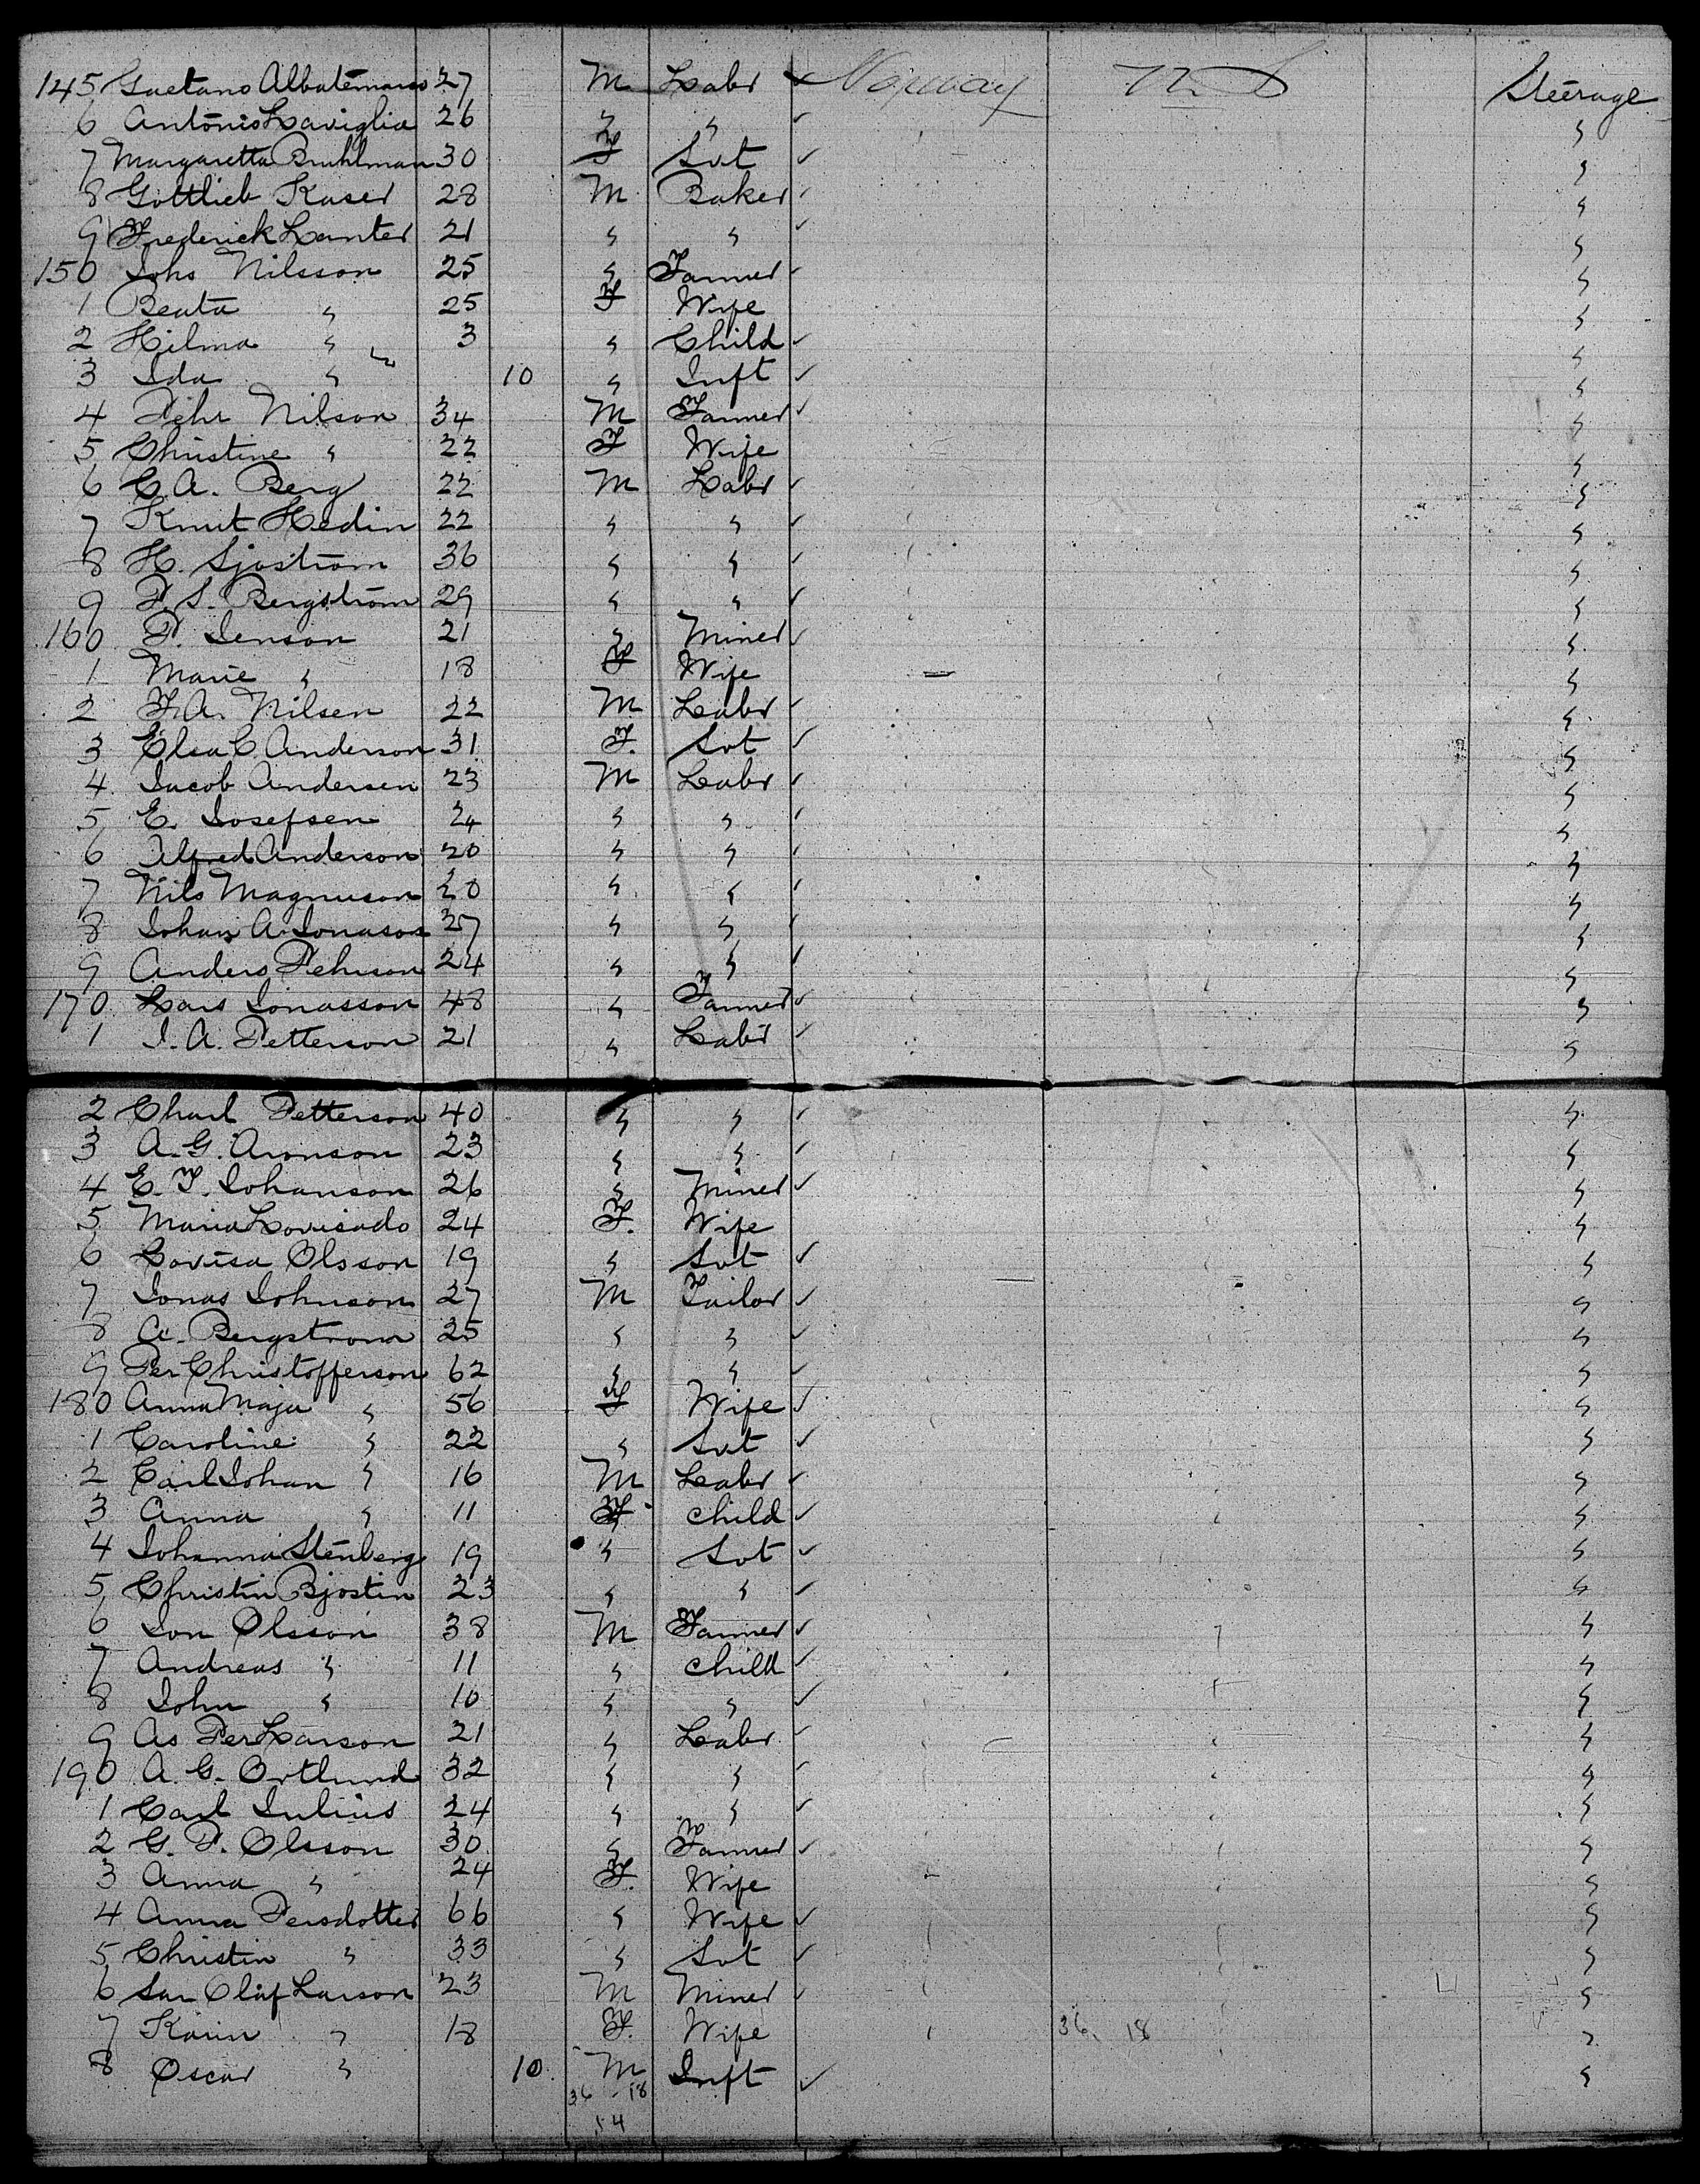 145 Gaetano Albatemarco 27 M Labr ✓ Norway U.S. Steerage
6 Antonio Laviglia 26 " " ✓ "
7 Margaretta Bruhlman 30 F Svt ✓ "
8 Gottlieb Kaser 28 M Baker ✓ "
9 Frederick Lanter 21 " " ✓ "
150 Johs Nilsson 25 " Farmer ✓ "
1 Beata " 25 F Wife "
2 Hilma " 3 " Child ✓ "
3 Ida " 10 " Inft ✓ "
4 Pehr Nilson 34 M Farmer ✓ "
5 Christine " 22 F Wife "
6 C.A. Berg 22 M Labr ✓ "
7 Knut Hedin 22 " " ✓ "
8 H. Sjostrom 36 " " ✓ "
9 P.S. Bergstrom 29 " " ✓ "
160 P. Jenson 21 " Miner ✓ "
1 Marie " 18 F Wife "
2 F.A. Nilsen 22 M Labr ✓ "
3 Elsa C Anderson 31 F. Svt ✓ "
4 Jacob Andersen 23 M Labr ✓ "
5 E. Josefsen 24 " " ✓ "
6 Alfred Anderson 20 " " ✓ "
7 Nils Magnuson 20 " " ✓ "
8 Johan A. Jonason 37 " " ✓ "
9 Anders Pehrson 24 " " ✓ "
170 Lars Jonasson 48 " Farmer ✓ "
1 J.A. Petterson 21 " Labr ✓ "
2 Charl Petterson 40 " " ✓ "
3 A.G. Aronson 23 " " ✓ "
4 E.F. Johanson 26 " Miner ✓ "
5 Maria Lovisa do 24 F. Wife "
6 Lovisa Olsson 19 " Svt ✓ "
7 Jonas Johnson 27 M Tailor ✓ "
8 A. Bergstrom 25 " " ✓ "
9 Per Christofferson 62 " " ✓ "
180 Anna Maja " 56 F Wife ✓ "
1 Caroline " 22 " Svt ✓ "
2 Carl Johan " 16 M Labr ✓ "
3 Anna " 11 F child ✓ "
4 Johanna Stenberg 19 " Svt ✓ "
5 Christin Bjostin 23 " " ✓ "
6 Jon Olsson 38 M Farmer ✓ "
7 Andreas " 11 " child ✓ "
8 John " 10 " " ✓ "
9 As Per Larson 21 " Labr ✓ "
190 A.G. Ortlund 32 " " ✓ "
1 Carl Julius 24 " " ✓ "
2 G.P. Olsson 30 " Farmer ✓ "
3 Anna " 24 F. Wife "
4 Anna Persdotter 66 " Wife ✓ "
5 Christin " 33 " Svt ✓ "
6 Olaf Larson 23 M Miner ✓ "
7 Karin " 18 F. Wife 36 18 "
8 Oscar " 10 M Inft ✓ "
36 18
54